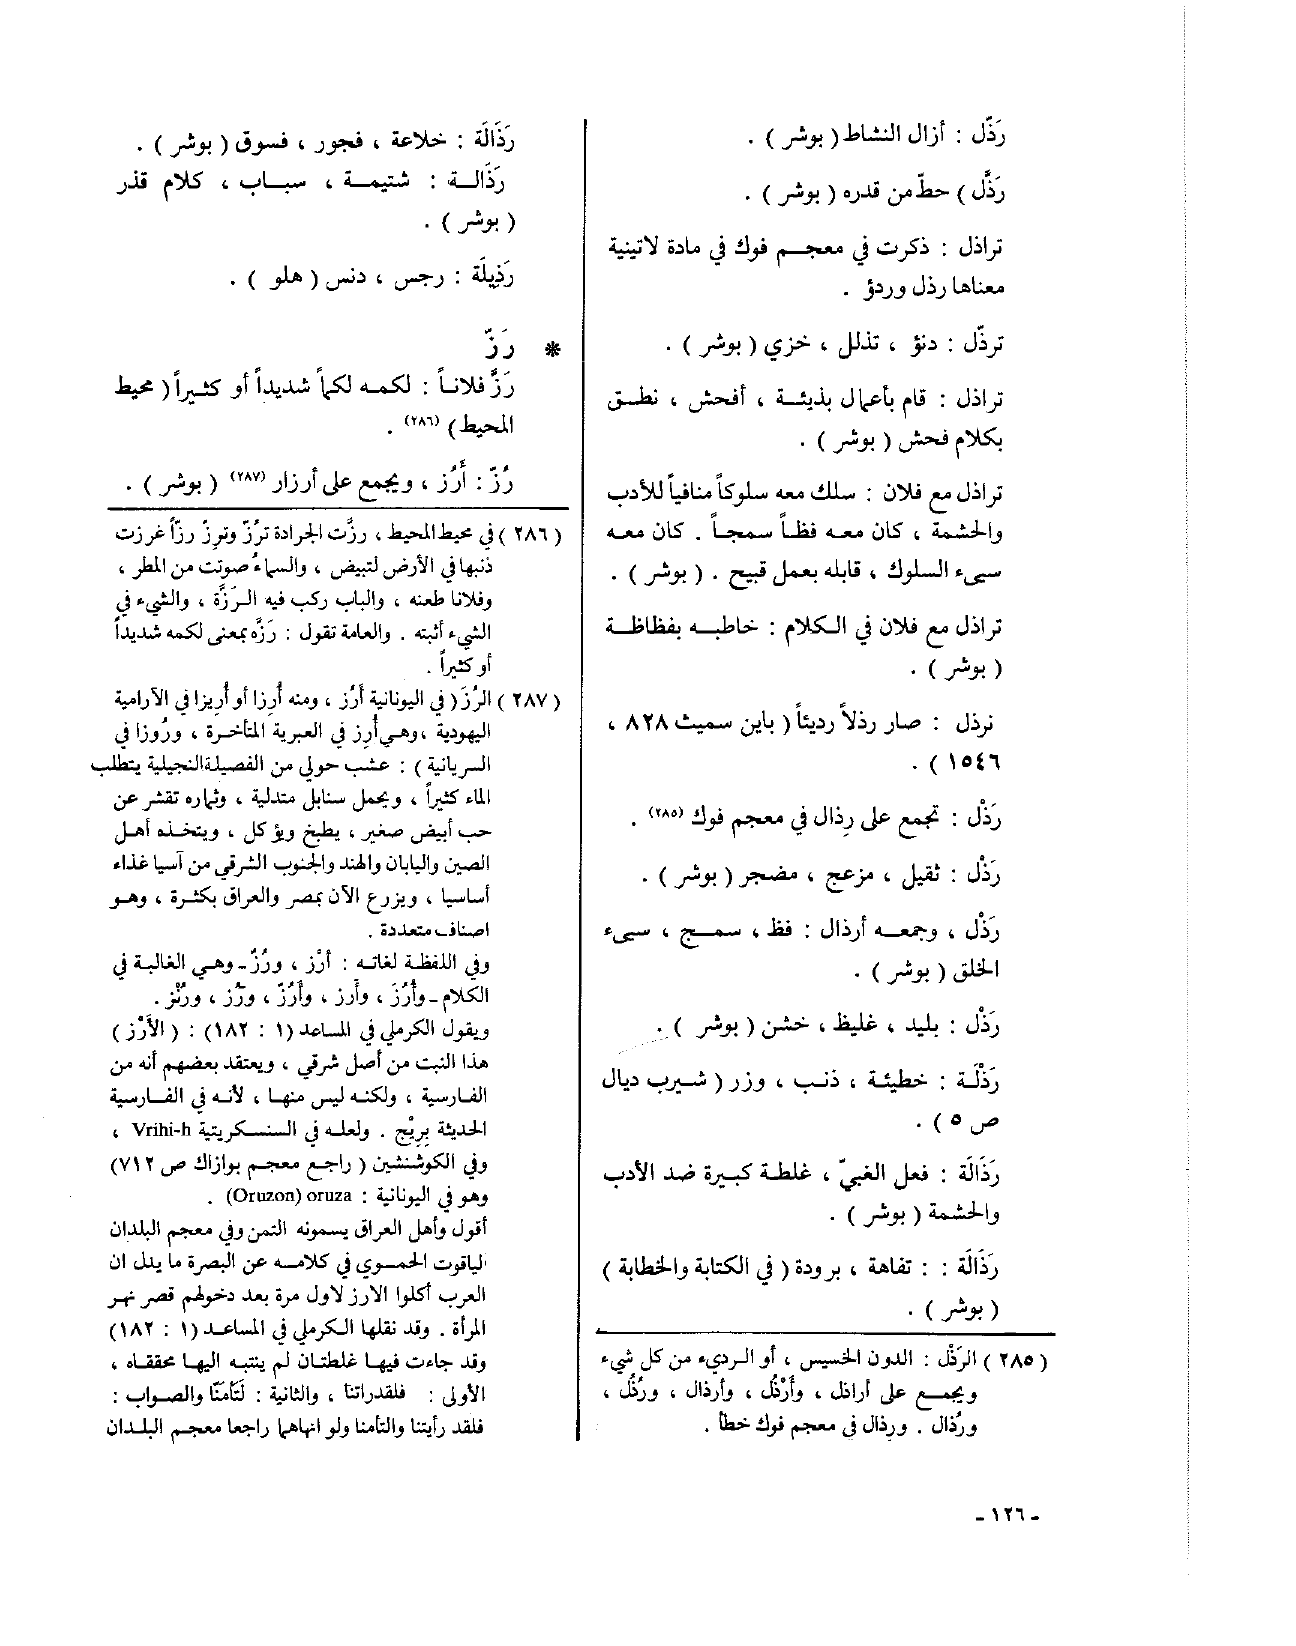 رَذّل : أزال النشاط ( بوشر ) .
رَذَّل ) حطّ من قدره ( بوشر ) .
تراذل : ذكرت في معجم فوك في مادة لاتينية
معناها رذل وردؤ .
ترذّل : دنؤ ، تذلل ، خزي ( بوشر ) .
تراذل : قام بأعمال بذيئة ، أفحش ، نطق
بكلام فحش ( بوشر ) .
تراذل مع فلان : سلك معه سلوكاً منافياً للأدب
والحشمة ، كان معه فظاً سمجاً . كان معه
سيىء السلوك ، قابله بعمل قبيح . ( بوشر ) .
تراذل مع فلان في الكلام : خاطبه بفظاظة
( بوشر ) .
نرذل : صار رذلاً رديئاً ( باين سميث ٨٢٨ ،
١٥٤٦ ) .
رَذْل : تجمع على رِذال في معجم فوك (٢٨٥) .
رَذْل : ثقيل ، مزعج ، مضجر ( بوشر ) .
رَذْل ، وجمعه أرذال : فظ ، سمج ، سيىء
الخلق ( بوشر ) .
رَذْل : بليد ، غليظ ، خشن ( بوشر ) .
رَذْلَة : خطيئة ، ذنب ، وزر ( شيرب ديال
ص ٥ ) .
رَذَالَة : فعل الغبيّ ، غلطة كبيرة ضد الأدب
والحشمة ( بوشر ) .
رَذَالَة : : تفاهة ، برودة ( في الكتابة والخطابة )
( بوشر ) .
( ٢٨٥ ) الرَذْل : الدون الخسيس ، أو الرديء من كل شيء
ويجمع على أراذل ، وأَرْذُل ، وأرذال ، ورُذُل ،
ورُذال . ورذال في معجم فوك خطأ .
رَذَالَة : خلاعة ، فجور ، فسوق ( بوشر ) .
رَذَالة : شتيمة ، سباب ، كلام قذر
( بوشر ) .
رَذِيلَة : رجس ، دنس ( هلو ) .
* رَزّ
رَزَّ فلاناً : لكمه لكماً شديداً أو كثيراً ( محيط
المحيط ) (٢٨٦) .
رُزّ : أَرُز ، ويجمع على أرزار (٢٨٧) ( بوشر ) .
( ٢٨٦ ) في محيط المحيط ، رزَّت الجرادة ترُزّ وترِزّ رزّاً غرزت
ذنبها في الأرض لتبيض ، والسماءُ صوتت من المطر ،
وفلانا طعنه ، والباب ركب فيه الرَزَّة ، والشيء في
الشيء أثبته . والعامة تقول : رَزَّه بمعنى لكمه شديداً
أو كثيراً .
( ٢٨٧ ) الرُزّ ( في اليونانية أَرُز ، ومنه أُرِزا أو أُريزا في الآرامية
اليهودية ، وهي أُرِز في العبرية المتأخرة ، ورُوزا في
السريانية ) : عشب حولي من الفصيلة النجيلية يتطلب
الماء كثيراً ، ويحمل سنابل متدلية ، وثماره تقشر عن
حب أبيض صغير ، يطبخ ويؤكل ، ويتخذه أهل
الصين واليابان والهند والجنوب الشرقي من آسيا غذاء
أساسيا ، ويزرع الآن بمصر والعراق بكثرة ، وهو
اصناف متعددة .
وفي اللفظة لغاته : أرْز ، ورُزّ - وهي الغالبة في
الكلام - وأُرُزَ ، وأَرز ، وأَرُزّ ، ورَّز ، ورُنْز .
ويقول الكرملي في المساعد ( ١ : ١٨٢ ) : ( الأَرْز )
هذا النبت من أصل شرقي ، ويعتقد بعضهم أنه من
الفارسية ، ولكنه ليس منها ، لأنه في الفارسية
الحديثة بِرِنْج . ولعله في السنسكريتية Vrihi-h ،
وفي الكوشنشين ( راجع معجم بوازاك ص ٧١٢)
وهو في اليونانية : Oruzon) oruza) .
أقول وأهل العراق يسمونه التمن وفي معجم البلدان
لياقوت الحموي في كلامه عن البصرة ما يدل ان
العرب أكلوا الارز لاول مرة بعد دخولهم قصر نهر
المرأة . وقد نقلها الكرملي في المساعد ( ١ : ١٨٢ )
وقد جاءت فيها غلطتان لم ينتبه اليها محققاه ،
الأولى : فلقدراتنا ، والثانية : لَتَأمَنّا والصواب :
فلقد رأيتنا والتأمنا ولو انهاهما راجعا معجم البلدان
- ١٢٦ -